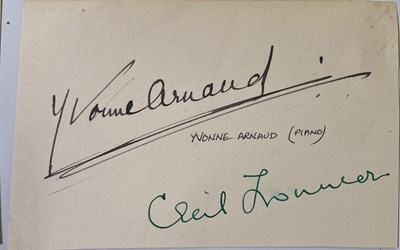 Yvonne Arnaud
YVONNE ARNAUD (PIANO)
Cecil